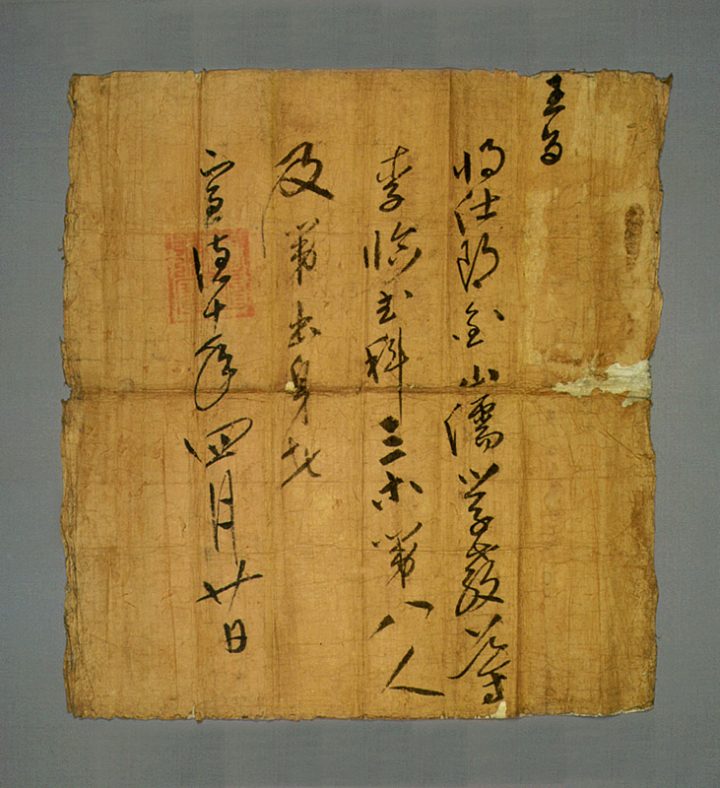 王旨
將仕郎金山儒學敎導
李臨武科三等第八人
及第出身者
宣德十年四月廿日